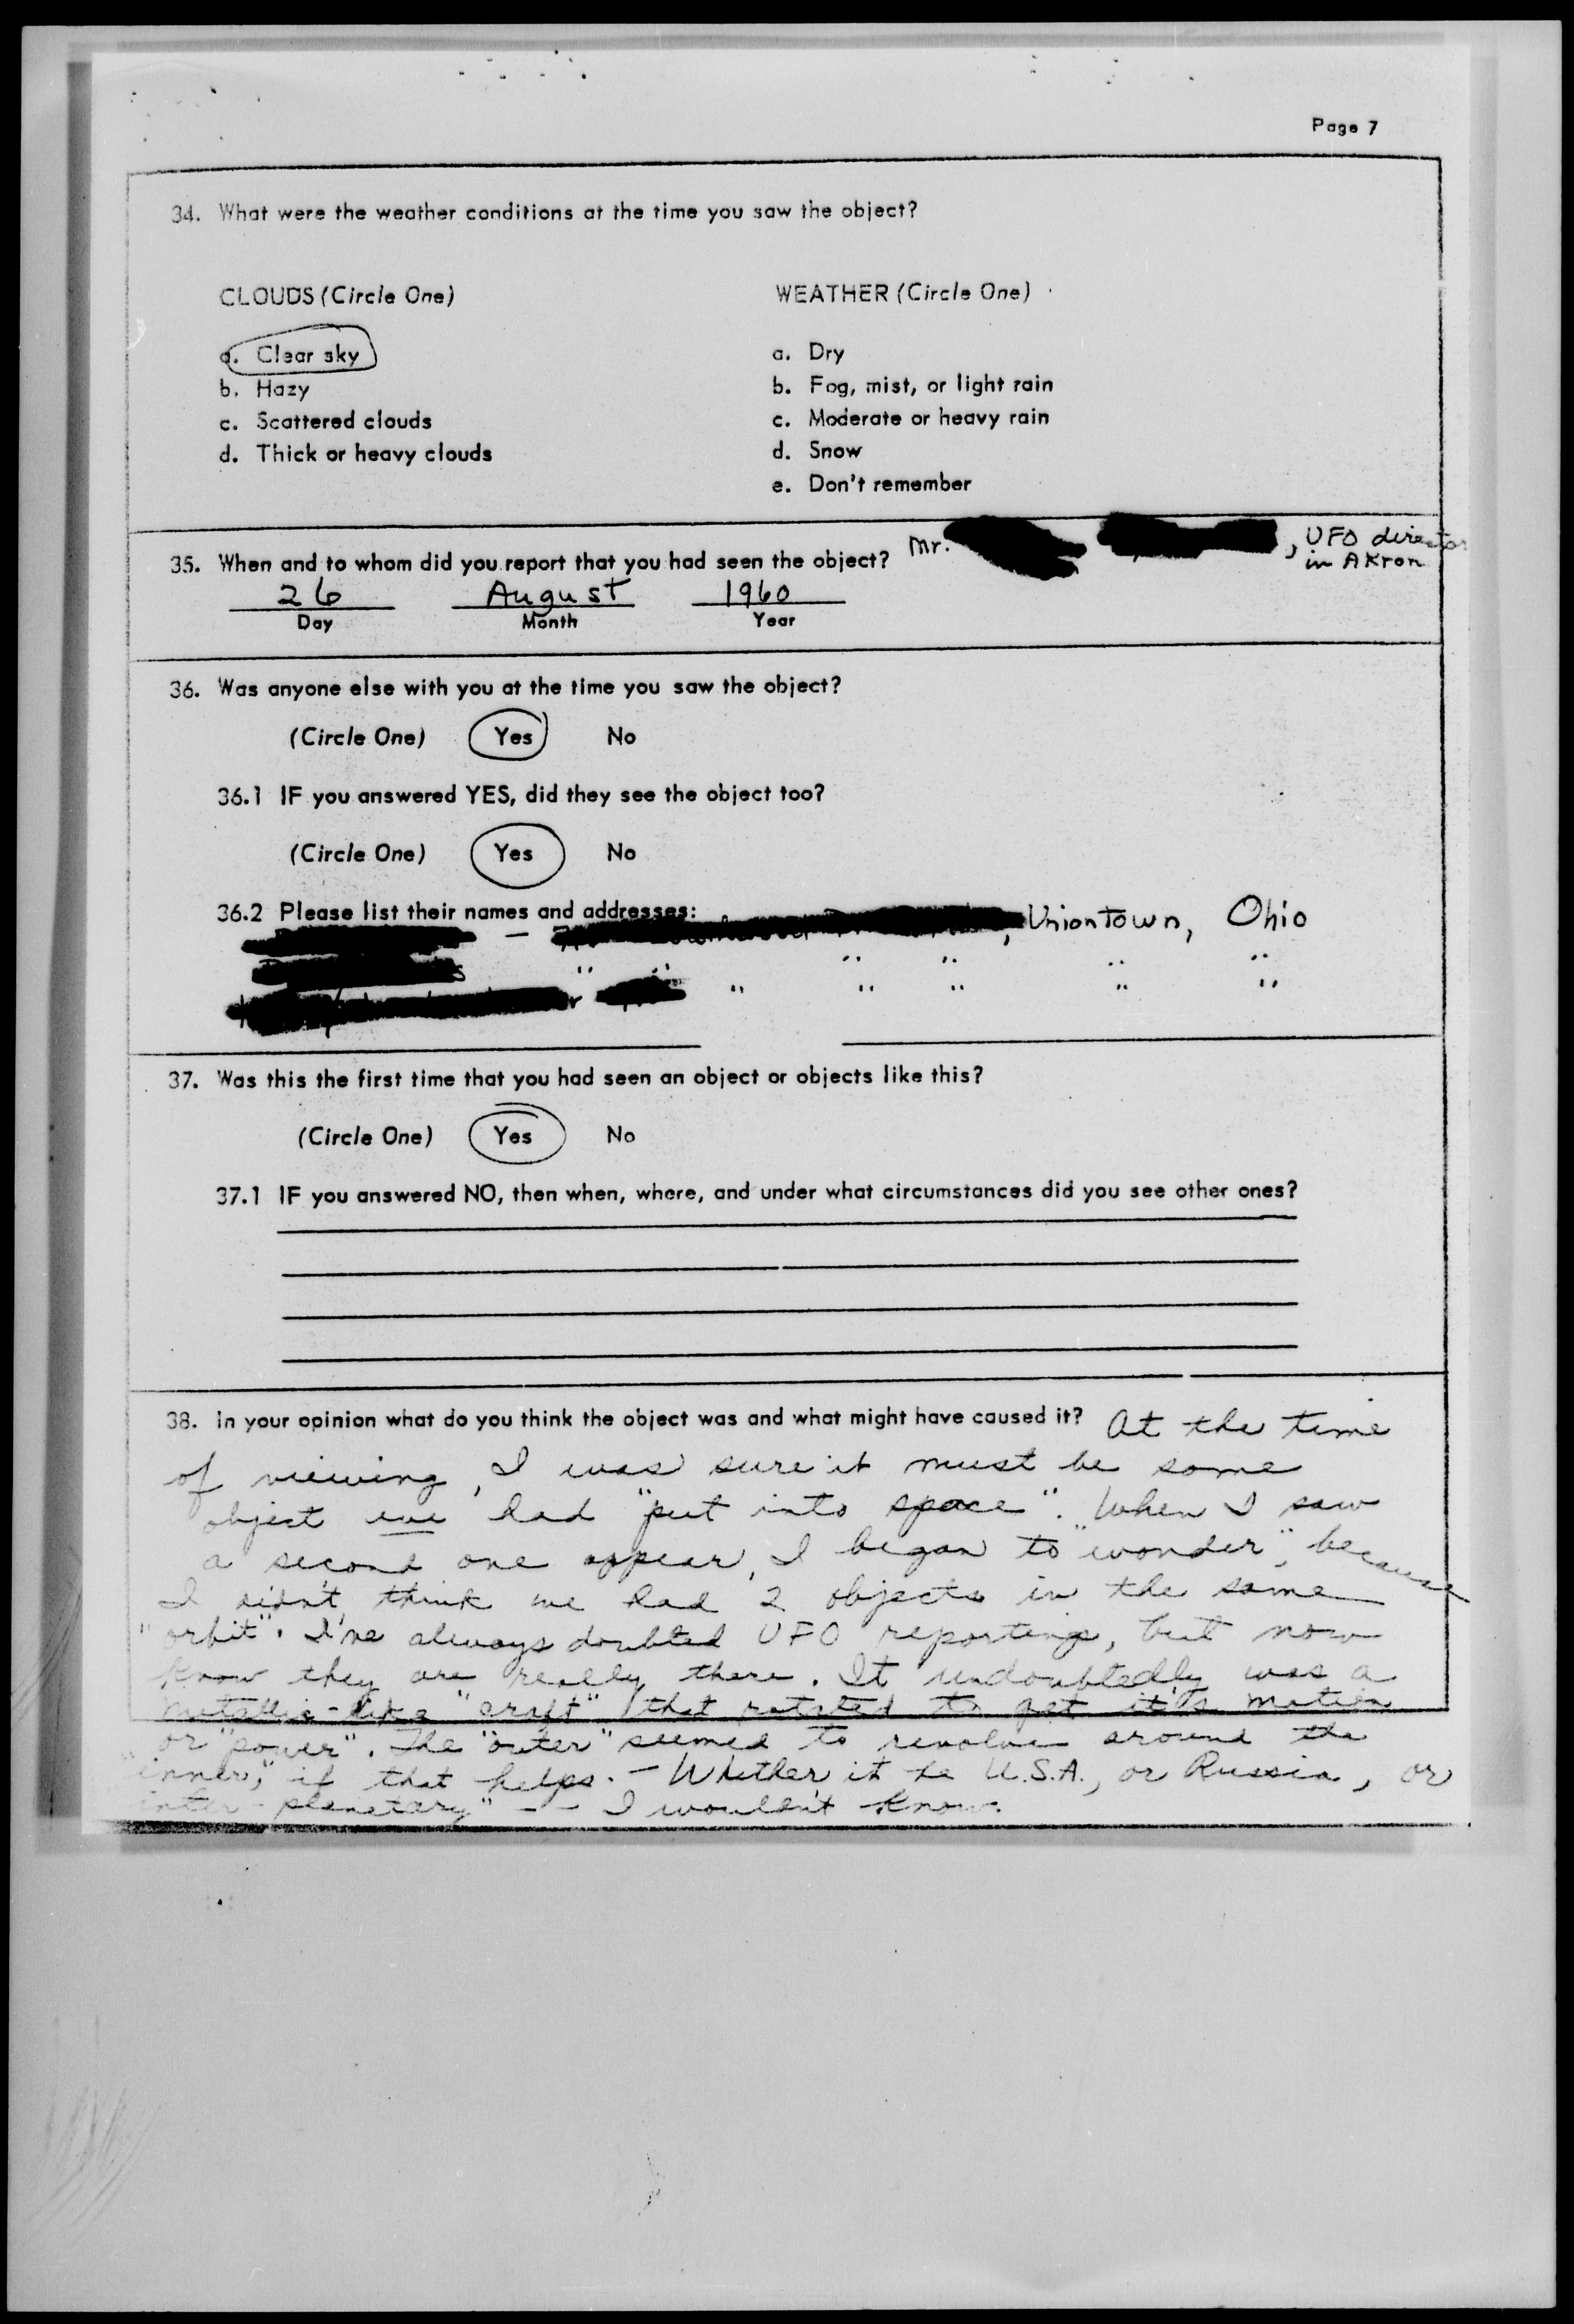 Page 7
34. What were the weather conditions at the time you saw the object?
CLOUDS (Circle One)
a. Clear sky
b. Hazy
c. Scattered clouds
d. Thick or heavy clouds
WEATHER (Circle One)
a. Dry
b. Fog, mist, or light rain
c. Moderate or heavy rain
d. Snow
e. Don't remember
35. When and to whom did you report that you had seen the object? Mr. , UFO director
in Akron
26 August 1960
Day Month Year
36. Was anyone else with you at the time you saw the object?
(Circle One) Yes No
36.1 IF you answered YES, did they see the object too?
(Circle One) Yes No
36.2 Please list their names and addresses:
— , Uniontown, Ohio
" " " " " "
" " " " "
37. Was this the first time that you had seen an object or objects like this?
(Circle One) Yes No
37.1 IF you answered NO, then when, where, and under what circumstances did you see other ones?
38. In your opinion what do you think the object was and what might have caused it? At the time
of viewing, I was sure it must be some
object we had "put into space". When I saw
a second one appear, I began to "wonder", because
I didn't think we had 2 objects in the same
"orbit". I've always doubted UFO reportings, but now
know they are really there. It undoubtedly was a
metallic-like "craft" that rotated to get it's motion
or "power". The "outer" seemed to revolve around the
"inner," if that helps. — Whether it be U.S.A., or Russia, or
inter-planetary" -- I wouldn't know.